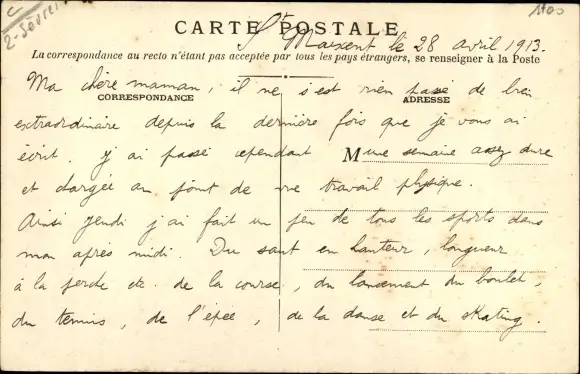 2-Sèvres
CARTE POSTALE
St Maixent le 28 avril 1913.
La correspondance au recto n'étant pas acceptée par tous les pays étrangers, se renseigner à la Poste
Ma chère maman, il ne s'est rien passé de bien
CORRESPONDANCE ADRESSE
extraordinaire depuis la dernière fois que je vous ai
écrit. j'ai passé cependant M une semaine assez dure
et chargée au point de vue travail physique.
Ainsi jeudi j'ai fait un peu de tous les sports dans
mon après midi. Du saut en hauteur, longueur
à la perche etc. de la course, du lancement du boulet,
du tennis, de l'épée, de la danse et du skating.